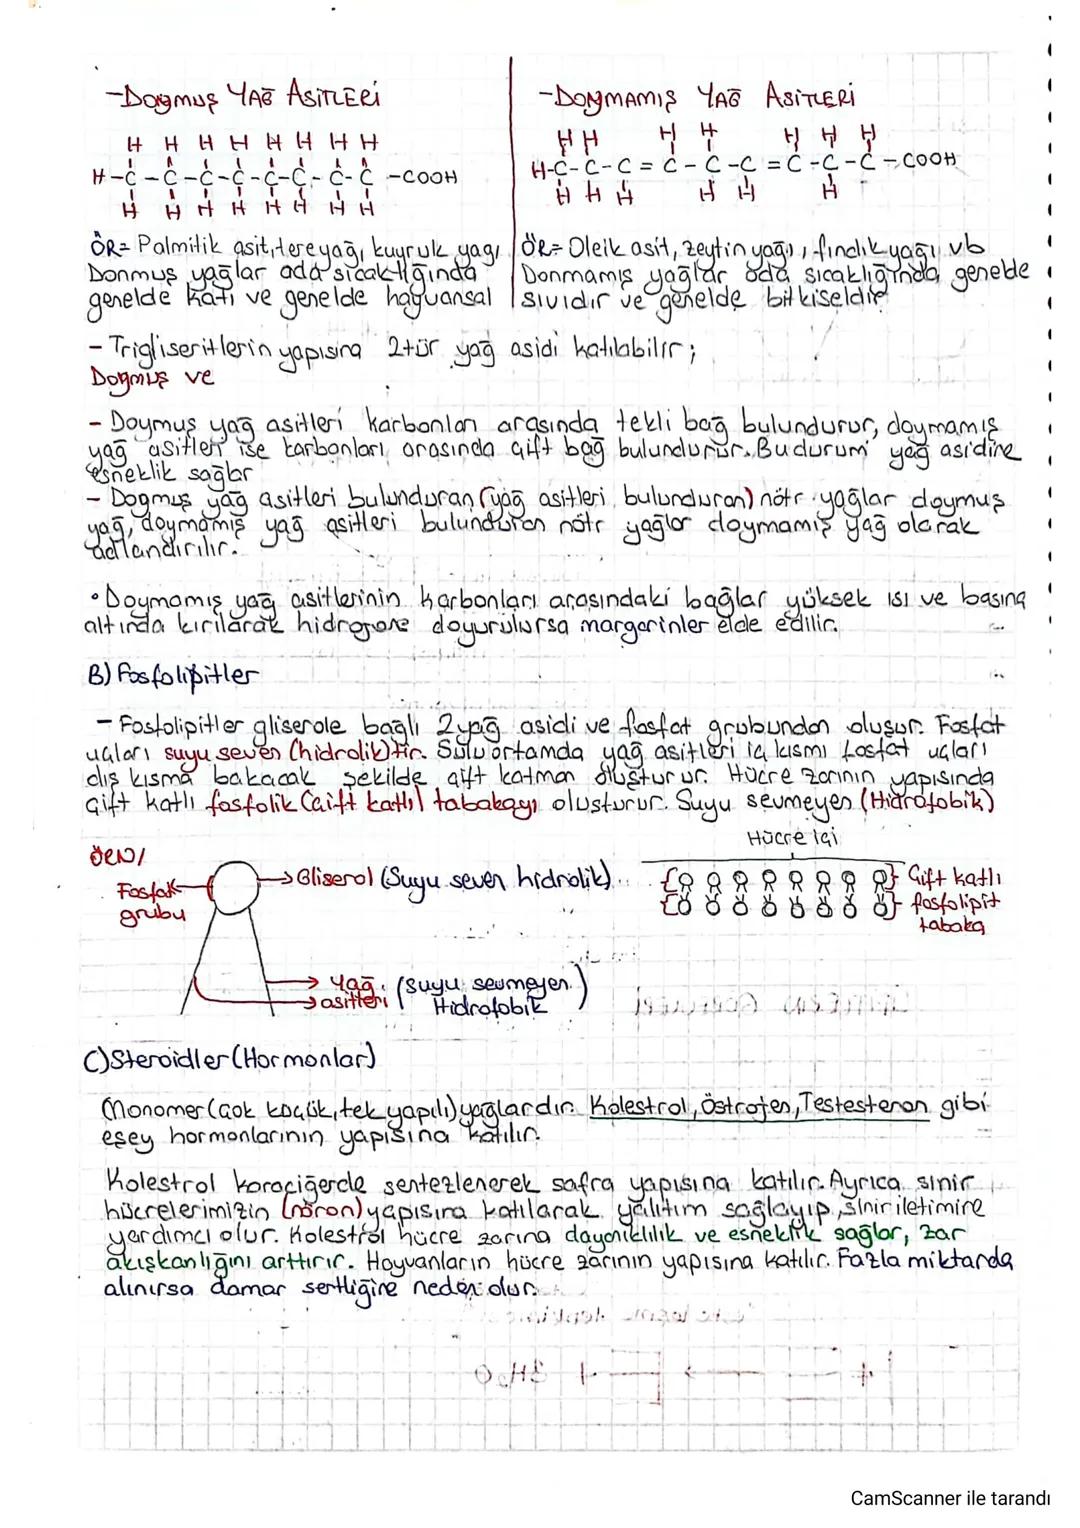 -Doymuş YAĞ ASİTLERİ
H H H H H H H H
H-C-C-C-C-C-C-C-C-COOH
H H H H H H H H
ÖR= Palmitik asit, tereyağı, kuyruk yağı
Donmuş yağlar oda sıcaklığında
genelde katı ve genelde hayvansal
-DOYMAMIŞ YAĞ ASİTLERİ
H H H H H H H
H-C-C-C=C-C-C=C-C-C-COOH
H H H H H H
ÖR= Oleik asit, zeytin yağı, fındık yağı vb
Donmamış yağlar oda sıcaklığında genelde
sıvıdır ve genelde bitkiseldir
- Trigliseritlerin yapısına 2 tür yağ asidi katılabilir;
Doymuş ve
- Doymuş yağ asitleri karbonları arasında tekli bağ bulundurur, doymamış
yağ asitleri ise karbonları arasında çift bağ bulundurur. Bu durum yağ asidine
esneklik sağlar
- Doymuş yağ asitleri bulunduran (yağ asitleri bulunduran) nötr yağlar doymuş
yağ, doymamış yağ asitleri bulunduran nötr yağlar doymamış yağ olarak
adlandırılır.
• Doymamış yağ asitlerinin karbonları arasındaki bağlar yüksek ısı ve basınç
altında kırılarak hidrojene doyurulursa margarinler elde edilir.
B) Fosfolipitler
- Fosfolipitler gliserole bağlı 2 yağ asidi ve fosfat grubundan oluşur. Fosfat
uçları suyu seven (hidrolik)tir. Sulu ortamda yağ asitleri iç kısmı fosfat uçları
dış kısma bakacak şekilde çift katman oluşturur. Hücre zarının yapısında
çift katlı fosfolik (çift katlı) tabakayı oluşturur. Suyu sevmeyen (Hidrofobik)
ÖRN/
Fosfat
grubu
Gliserol (Suyu seven hidrolik)
Yağ
asitleri
(suyu sevmeyen
Hidrofobik)
Hücre içi
Çift katlı
fosfolipit
tabaka
C) Steroidler (Hormonlar)
Monomer (çok küçük, tek yapılı) yağlardır. Kolestrol, Östrojen, Testesteron gibi
eşey hormonlarının yapısına katılır.
Kolestrol karaciğerde sentezlenerek safra yapısına katılır. Ayrıca sinir
hücrelerimizin (nöron) yapısına katılarak yalıtım sağlayıp sinir iletimine
yardımcı olur. Kolestrol hücre zarına dayanıklılık ve esneklik sağlar, zar
akışkanlığını arttırır. Hayvanların hücre zarının yapısına katılır. Fazla miktarda
alınırsa damar sertliğine neden olur.
CamScanner ile tarandı